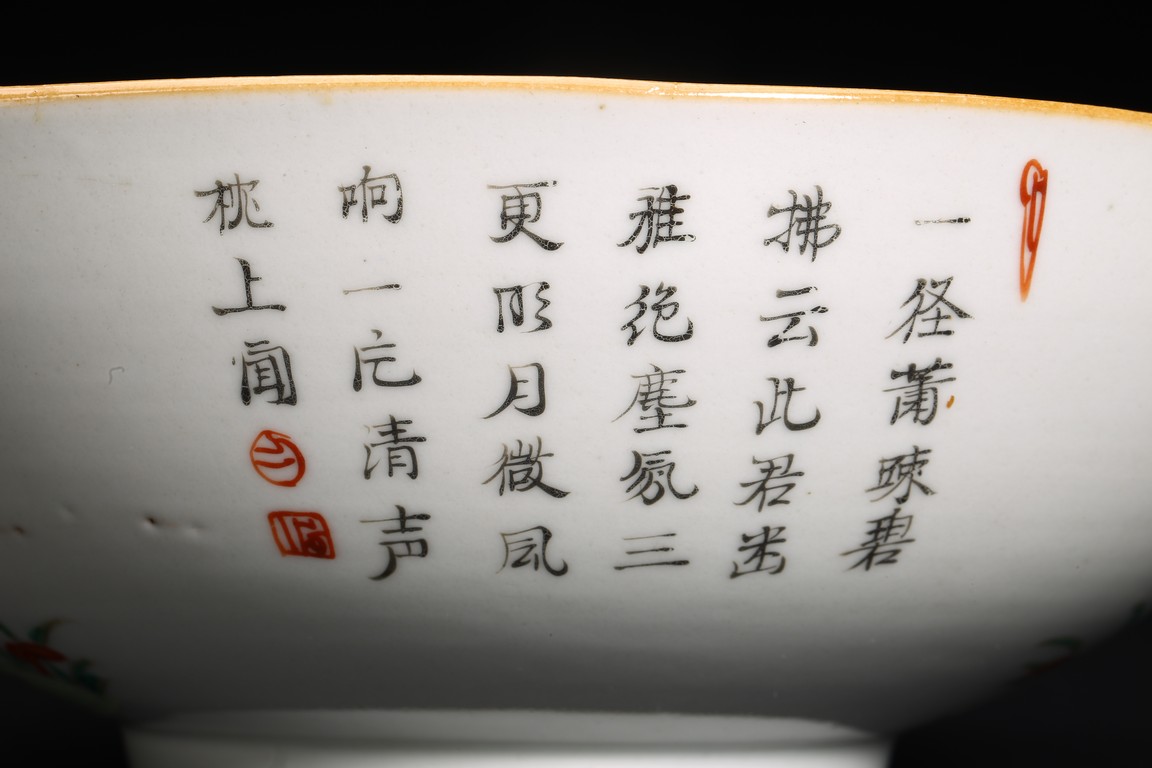 一径萧踈碧
拂云此君幽
雅绝塵氛三
更明月微风
响一片清声
枕上闻